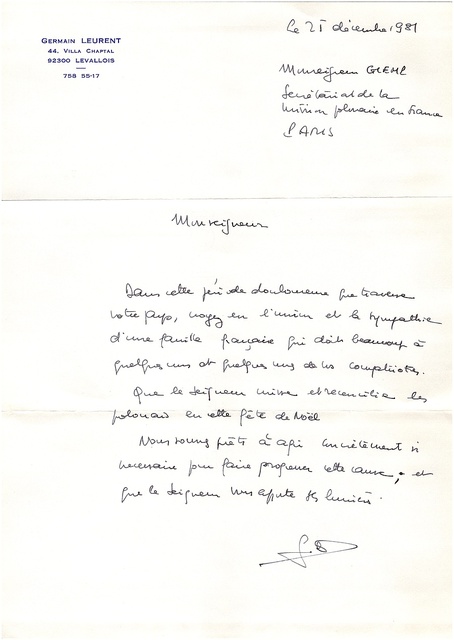 GERMAIN LEURENT
44. VILLA CHAPTAL
92300 LEVALLOIS
758 55-17
Le 25 décembre 1981
Monseigneur
Secrétariat de la
mission polonaise en France
PARIS
Monseigneur
Dans cette période douloureuse que traverse
votre pays, voyez en l'union et la sympathie
d'une famille française qui doit beaucoup à
quelques uns et quelques unes de vos compatriotes.
Que le Seigneur unisse et réconcilie les
polonais en cette fête de Noël
Nous sommes prêts à agir concrètement si
necessaire pour faire progresser cette cause, et
que le Seigneur vous apporte sa lumière.